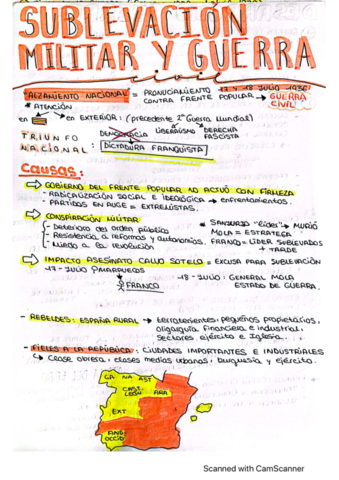 SUBLEVACIÓN
MILITAR Y GUERRA
civil
"ALZAMIENTO NACIONAL" = PRONUNCIAMIENTO 17 Y 18 JULIO 1936
* ATENCIÓN CONTRA FRENTE POPULAR → GUERRA CIVIL
en en EXTERIOR: (precedente 2ª Guerra Mundial)
TRIUNFO DEMOCRACIA LIBERALISMO DERECHA FASCISTA
NACIONAL: DICTADURA FRANQUISTA
Causas:
GOBIERNO DEL FRENTE POPULAR NO ACTUÓ CON FIRMEZA
- RADICALIZACIÓN SOCIAL E IDEOLÓGICA → enfrentamientos.
- PARTIDOS EN AUGE = EXTREMISTAS.
CONSPIRACIÓN MILITAR * SANJURJO "líder" → MURIÓ
- Deterioro del orden público MOLA = ESTRATEGA
- Resistencia a reformas y autonomías. FRANCO = LÍDER SUBLEVADOS
- Miedo a la revolución + TARDE
IMPACTO ASESINATO CALVO SOTELO = EXCUSA PARA SUBLEVACIÓN
17 - JULIO MARRUECOS 18 - JULIO: GENERAL MOLA
FRANCO ESTADO DE GUERRA.
- REBELDES: ESPAÑA RURAL → terratenientes, pequeños propietarios,
oligarquía financiera e industrial,
sectores ejército e Iglesia.
- FIELES A LA REPÚBLICA: CIUDADES IMPORTANTES E INDUSTRIALES
↳ Clase obrera, clases medias urbanas, burguesía y ejército.
GA NA AST
CAST LEÓN ARA
EXT
AND OCCID
Scanned with CamScanner